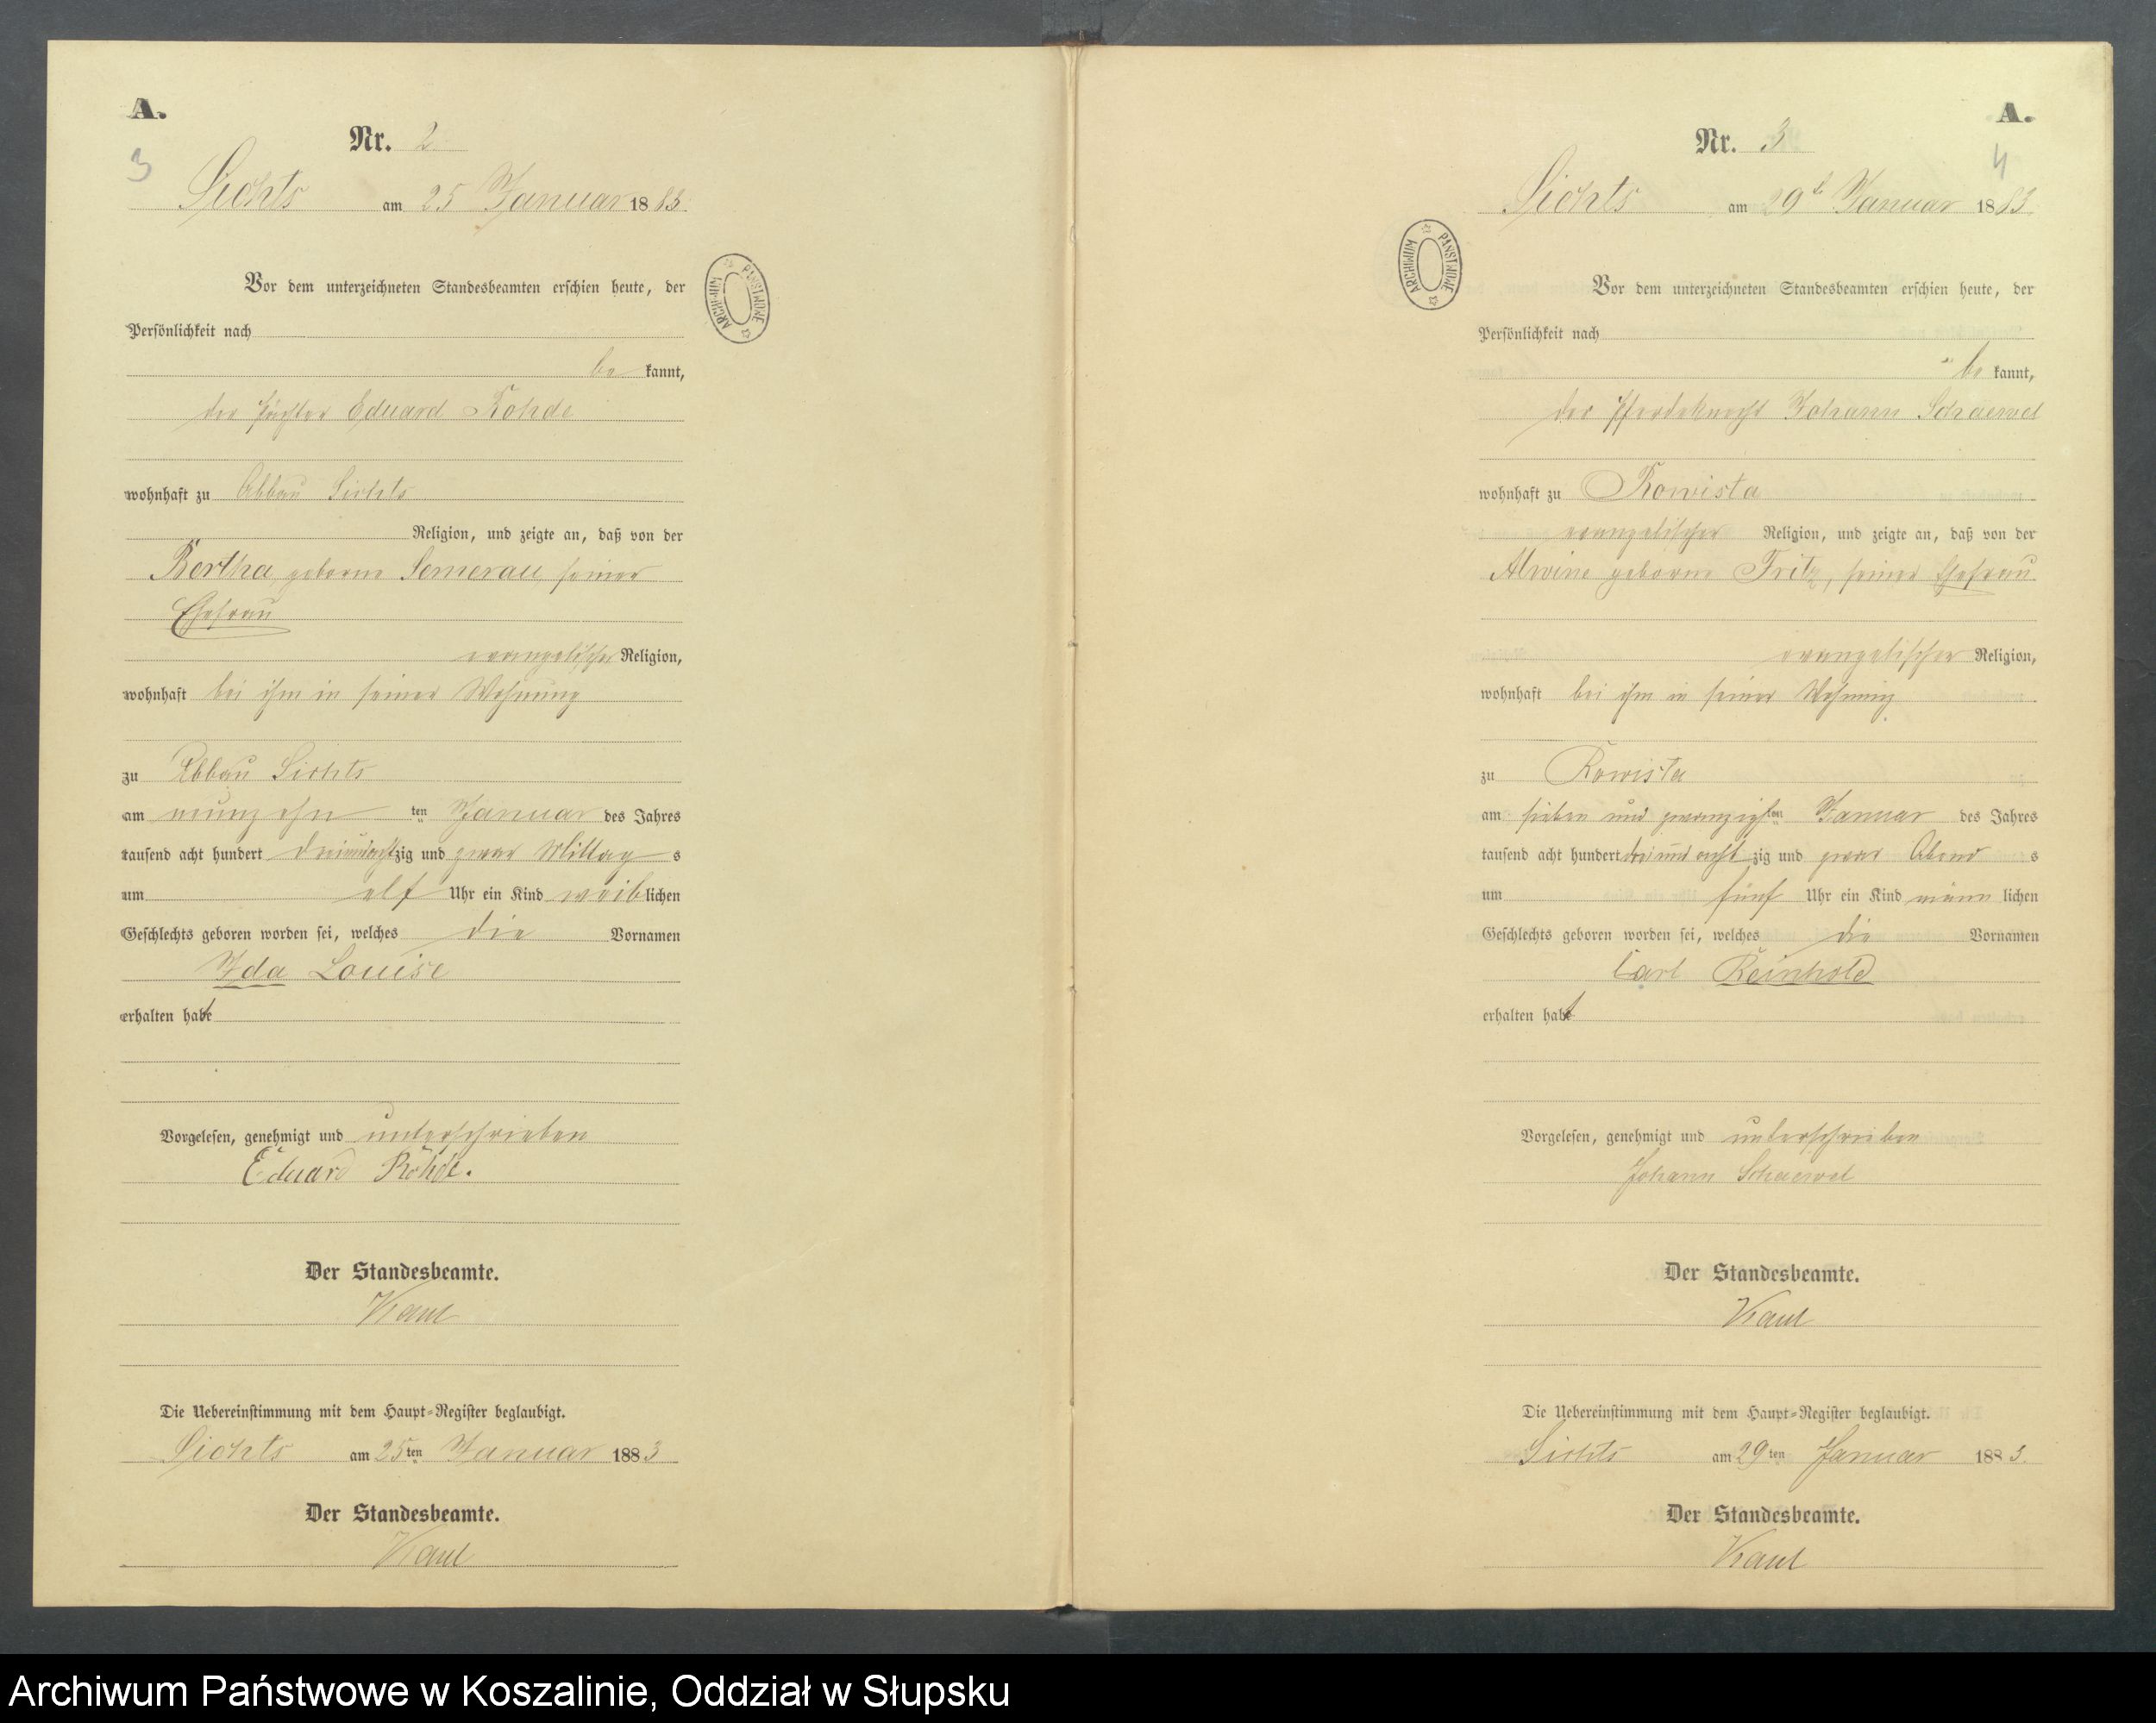 A.
Nr. 2
3
Lichts am 25 Januar 1883.
Vor dem unterzeichneten Standesbeamten erschien heute, der
ARCHIWUM PAŃSTWOWE
Persönlichkeit nach
be kannt,
der Pächter Eduard Rohde
wohnhaft zu Abbau Sichts
Religion, und zeigte an, daß von der
Bertha geborne Semerau seiner
Ehefrau
evangelischer Religion,
wohnhaft bei ihm in seiner Wohnung
zu Abbau Sichts
am neunzehn ten Januar des Jahres
tausend acht hundert dreiundachtzig und zwar Mittag s
um elf Uhr ein Kind weiblichen
Geschlechts geboren worden sei, welches die Vornamen
Ida Louise
erhalten hat
Vorgelesen, genehmigt und unterschrieben
Eduard Rohde.
Der Standesbeamte.
Kaul
Die Uebereinstimmung mit dem Haupt-Register beglaubigt.
Sichts am 25ten Januar 1883
Der Standesbeamte.
Kaul
A.
Nr. 3
4
Sichts am 29t Januar 1883.
ARCHIWUM PAŃSTWOWE
Vor dem unterzeichneten Standesbeamten erschien heute, der
Persönlichkeit nach
be kannt,
der Pferdeknecht Johann Schaewel
wohnhaft zu Rowista
evangelischer Religion, und zeigte an, daß von der
Alwine geborne Fritz, seiner Ehefrau
evangelischer Religion,
wohnhaft bei ihm in seiner Wohnung
zu Rowista
am sieben und zwanzigsten Januar des Jahres
tausend acht hundert drei und acht zig und zwar Abend s
um fünf Uhr ein Kind männ lichen
Geschlechts geboren worden sei, welches die Vornamen
Carl Reinhold
erhalten hat
Vorgelesen, genehmigt und unterschrieben
Johann Schaewel
Der Standesbeamte.
Kaul
Die Uebereinstimmung mit dem Haupt-Register beglaubigt.
Sichts am 29ten Januar 1883.
Der Standesbeamte.
Kaul
Archiwum Państwowe w Koszalinie, Oddział w Słupsku